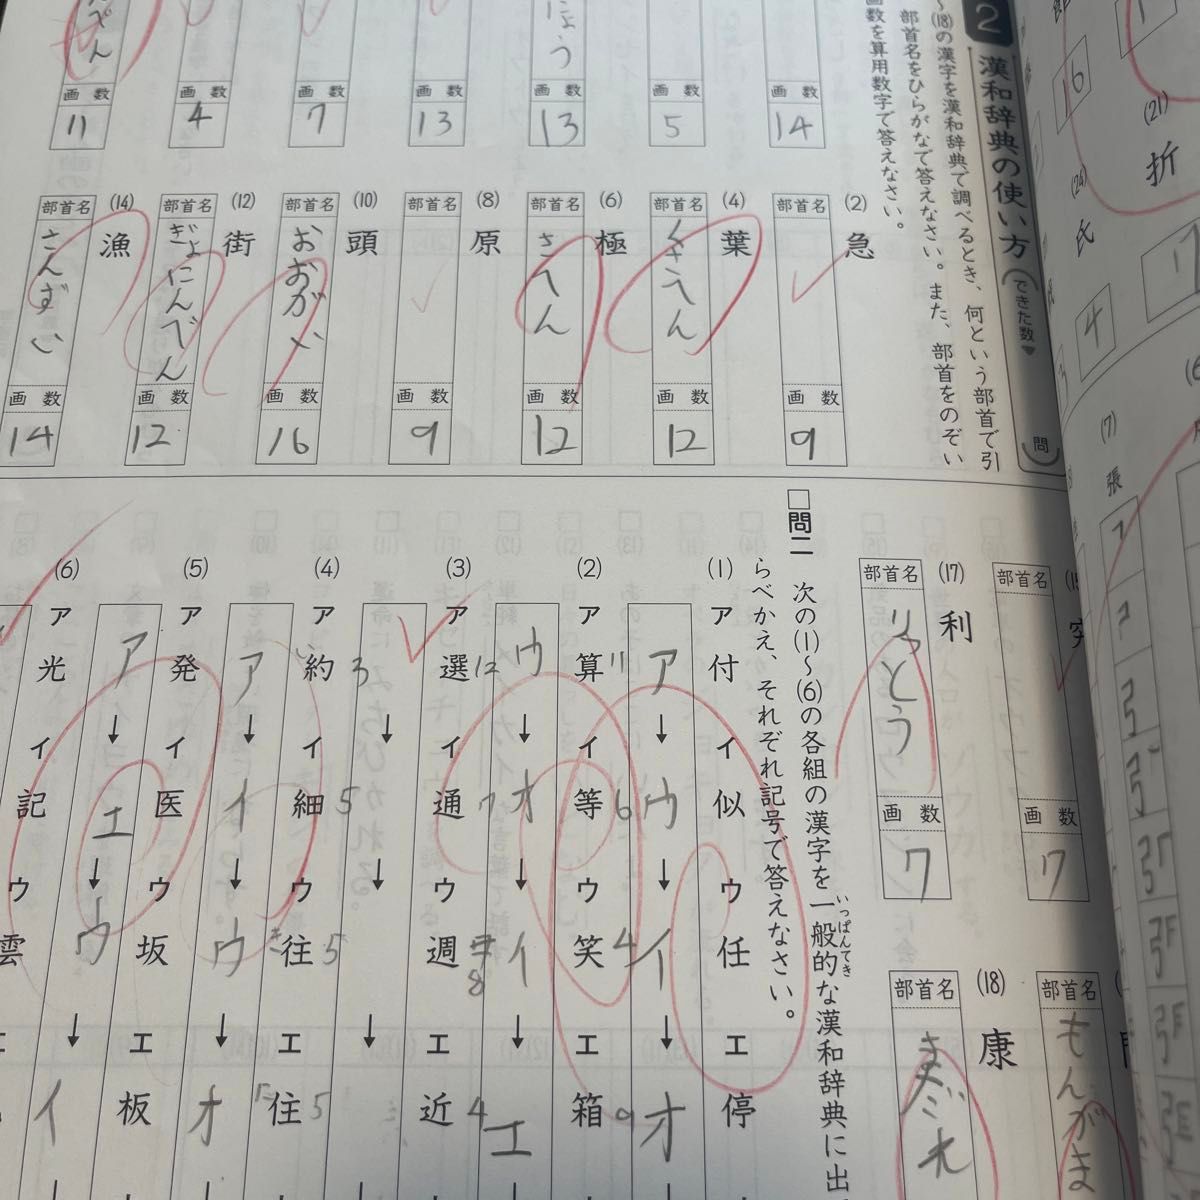 2 漢和辞典の使い方 できた数▼ 問
〜(18)の漢字を漢和辞典で調べるとき、何という部首で引
部首名をひらがなで答えなさい。また、部首をのぞい
画数を算用数字で答えなさい。
画数 14
画数 5
にょう 画数 13
画数 13
画数 7
画数 4
画数 11
(2) 急 部首名 画数 9
(4) 葉 部首名 くさへん 画数 12
(6) 極 部首名 きへん 画数 12
(8) 原 部首名 画数 9
(10) 頭 部首名 おおがい 画数 16
(12) 街 部首名 ぎょにんべん 画数 12
(14) 漁 部首名 さんずい 画数 14
部首名 画数 7
(17) 利 部首名 りっとう 画数 7
部首名 もんがま
(18) 康 部首名 まだれ
□問二 次の(1)〜(6)の各組の漢字を一般的な漢和辞典に出
いっぱんてき
らべかえ、それぞれ記号で答えなさい。
(1) ア 付 イ 似 ウ 任 エ 停
ア→ウ→イ→オ
(2) ア 算 イ 等 ウ 笑 エ 箱
11 6 4 9
ウ→オ→イ→エ
(3) ア 選 イ 通 ウ 週 エ 近
12 7 8 4
↓ ↓ ↓
(4) ア 約 イ 細 ウ 往 エ 住
3 5 5 5
ア→イ→ウ→オ
(5) ア 発 イ 医 ウ 坂 エ 板
ア→エ→ウ→イ
(6) ア 光 イ 記 ウ 雲
(21) 折
16
(24) 氏
4
(7) 張